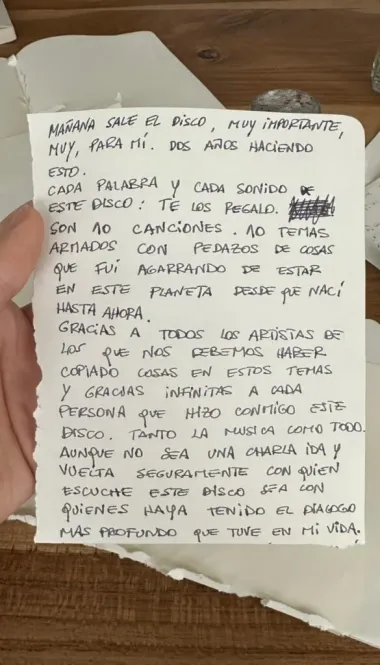 MAÑANA SALE EL DISCO, MUY IMPORTANTE,
MUY, PARA MÍ. DOS AÑOS HACIENDO
ESTO.
CADA PALABRA Y CADA SONIDO DE
ESTE DISCO: TE LOS REGALO.
SON 10 CANCIONES. 10 TEMAS
ARMADOS CON PEDAZOS DE COSAS
QUE FUÍ AGARRANDO DE ESTAR
EN ESTE PLANETA DESDE QUE NACÍ
HASTA AHORA.
GRACIAS A TODOS LOS ARTISTAS DE
LOS QUE NOS DEBEMOS HABER
COPIADO COSAS EN ESTOS TEMAS
Y GRACIAS INFINITAS A CADA
PERSONA QUE HIZO CONMIGO ESTE
DISCO. TANTO LA MUSICA COMO TODO.
AUNQUE NO SEA UNA CHARLA IDA Y
VUELTA SEGURAMENTE CON QUIEN
ESCUCHE ESTE DISCO SEA CON
QUIENES HAYA TENIDO EL DIALOGO
MAS PROFUNDO QUE TUVE EN MI VIDA.